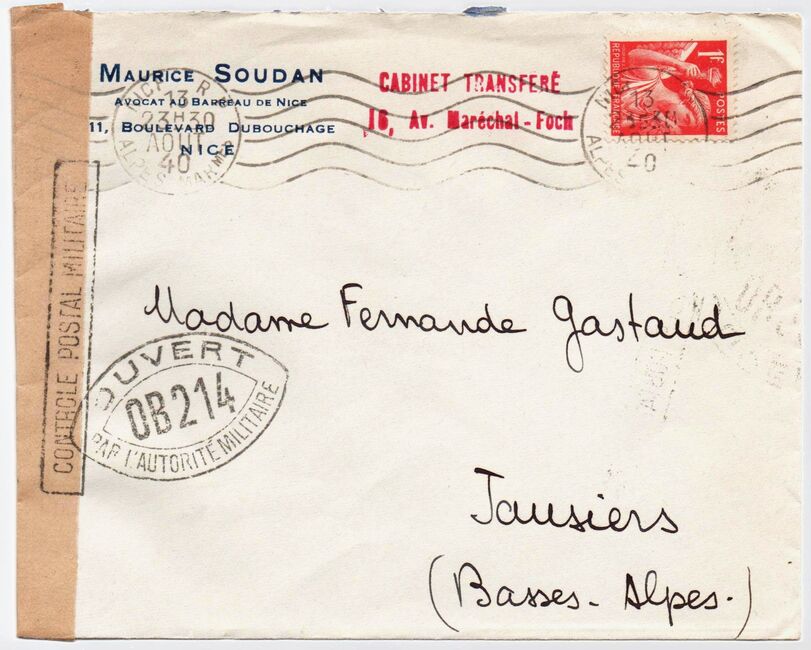 MAURICE SOUDAN
AVOCAT AU BARREAU DE NICE
11, BOULEVARD DUBOUCHAGE
NICE
CABINET TRANSFERÉ
16, Av. Maréchal-Foch
1F
POSTES
RÉPUBLIQUE FRANÇAISE
13
23H30
AOUT
40
13
AOUT
40
Madame Fernande Gastaud
CONTROLE POSTAL MILITAIRE
OUVERT
OB214
PAR L'AUTORITÉ MILITAIRE
Jausiers
(Basses-Alpes.)